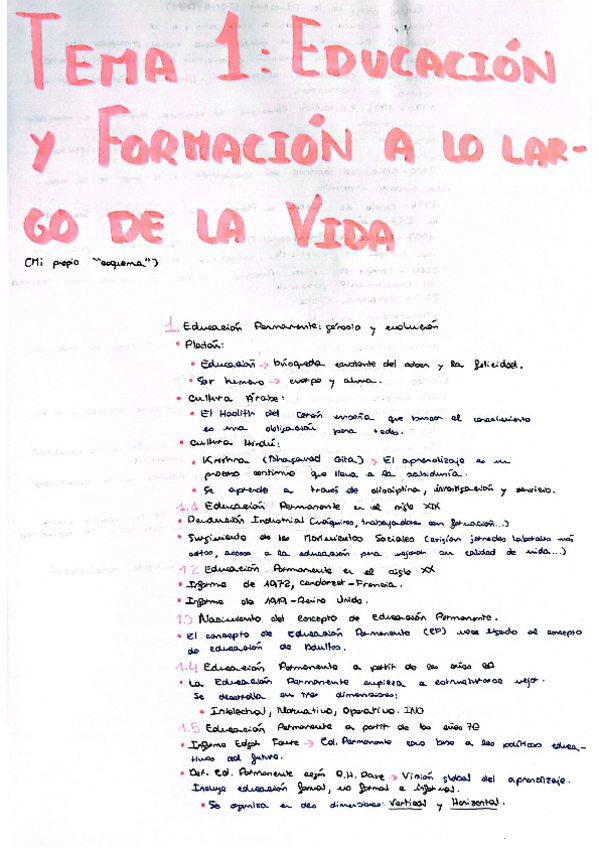 TEMA 1: EDUCACIÓN
Y FORMACIÓN A LO LAR-
GO DE LA VIDA
(Mi propio "esquema")
1. Educación Permanente: génesis y evolución
• Platón:
• Educación → búsqueda constante del saber y la felicidad.
• Ser humano → cuerpo y alma.
• Cultura Árabe:
• El Hadith del Corán enseña que buscar el conocimiento
es una obligación para todos.
• Cultura Hindú:
• Krishna (Bhagavad Gita) → El aprendizaje es un
proceso continuo que lleva a la sabiduría.
• Se aprende a través de disciplina, investigación y servicio.
1.1 Educación Permanente en el siglo XIX
• Revolución Industrial (máquinas, trabajadores con formación...)
• Surgimiento de los Movimientos Sociales (exigían jornadas laborales más
cortas, acceso a la educación para mejorar su calidad de vida...)
1.2 Educación Permanente en el siglo XX
• Informe de 1972, Condorcet-Francia.
• Informe de 1919-Reino Unido.
1.3 Nacimiento del concepto de Educación Permanente.
• El concepto de Educación Permanente (EP) nace ligado al concepto
de educación de Adultos.
1.4 Educación Permanente a partir de los años 60
• La Educación Permanente empieza a estructurarse mejor.
Se desarrolla en tres dimensiones:
• Intelectual, Normativo, Operativo. INO
1.5 Educación Permanente a partir de los años 70
• Informe Edgar Faure → Ed. Permanente como base a las políticas educa-
tivas del futuro.
• Def. Ed. Permanente según R.H. Dave → Visión global del aprendizaje.
Incluye educación formal, no formal e informal.
• Se organiza en dos dimensiones: Vertical y Horizontal.